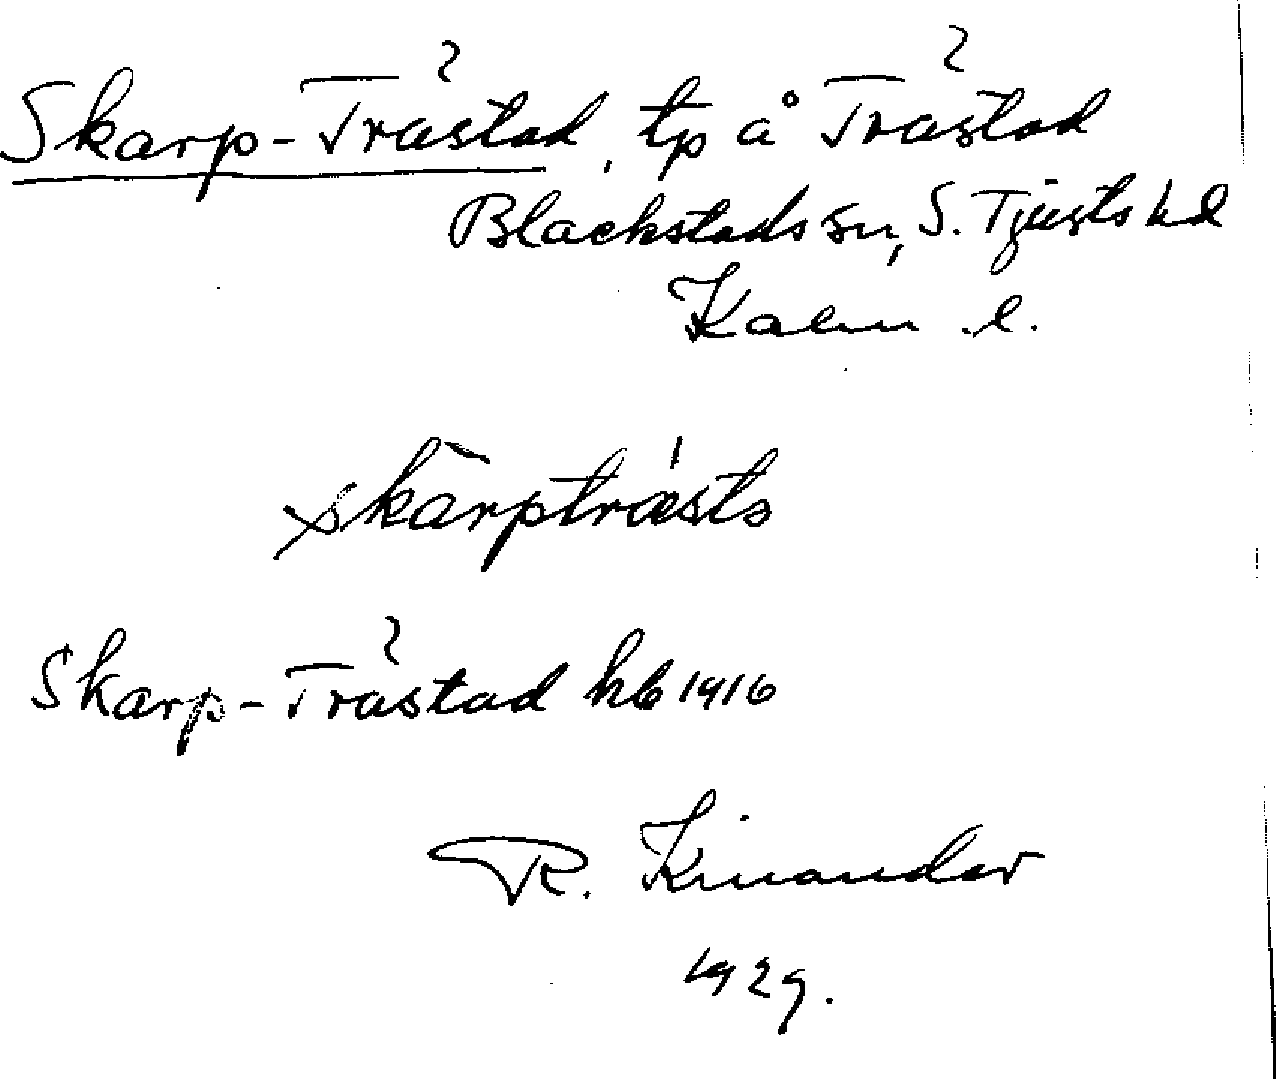 Skarp-Trästad, tp å Trästad
Blackstads sn, S. Tjusts hd
Kalm. l.
skārptræ̍sta
Skarp-Trästad hb 1916
R. Kinander
1929.